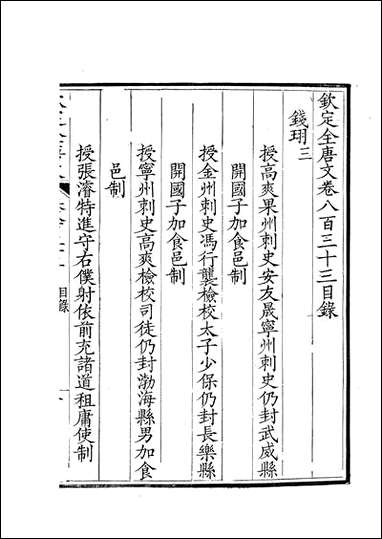 欽定全唐文卷八百三十三目錄
錢珝三
授高爽果州刺史安友晟寧州刺史仍封武威縣
開國子加食邑制
授金州刺史馮行襲檢校太子少保仍封長樂縣
開國子加食邑制
授寧州刺史高爽檢校司徒仍封渤海縣男加食
邑制
授張濬特進守右僕射依前充諸道租庸使制
目錄
一